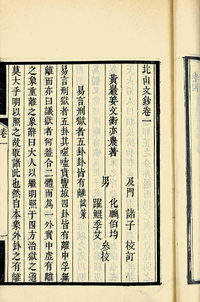 北山文鈔卷一
及門 諸子 校訂
黃巖姜文衡亦農著
男 化鵬伯均
躍鯤季艾 參校
易言刑獄者五卦卦皆有離試箋
易言刑獄者五卦其噬嗑賁豐旅四卦皆有離中孚無
離而亦曰議獄者何蓋合二體而爲一外實中虛有離
之象重離之象辭曰大人以繼明照于四方治獄之道
莫大乎明以照之故取諸此也然自本象外卦之有離
卷一